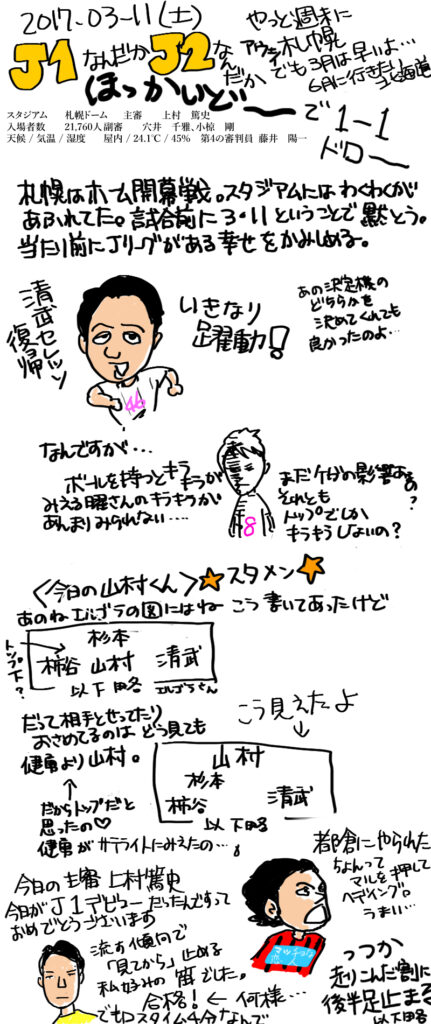 2017.03-11(土)
やっと週末に
アウェイ札幌
でも3月は早いよ…
6月に行きたい
北海道
J1なんだかJ2なんだか
ほっかいどーで
1-1
ドロー
スタジアム 札幌ドーム 主審 上村 篤史
入場者数 21,760人 副審 穴井 千雅、小椋 剛
天候 / 気温 / 湿度 屋内 / 24.1℃ / 45% 第4の審判員 藤井 陽一
札幌はホーム開幕戦。スタジアムにはわくわくが
あふれてた。試合前に3.11ということで黙とう。
当たり前にJリーグがある幸せをかみしめる。
清武セレッソ
復帰
いきなり
躍動!
あの決定機の
どちらかを
決めてくれても
良かったのよ…
46
なんですが…
ボールを持つとキラキラが
みえる曜さんのキラキラが
あんまりみられない….
8
まだケガの影響あるの?
それとも
トップでしか
キラキラしないの?
<今日の山村くん>★スタメン★
あのねエルゴラの図にはね こう書いてあったけど
トップ下?
杉本
柿谷 山村 清武
以下略
エルゴラさん
だって相手とせってたり
おさめてるのは どう見ても
健勇より山村。
↑
だからトップだと
思ったの♡
健勇がサテライトにみえたの…。
こう見えたよ
↓
山村
杉本
柿谷 清武
以下略
都倉にやられた
ちょんって
マルを押して
ヘディング。
うまい…
今日の主審 上村篤史
今日がJ1デビューだったんですって
おめでとうございます
流す傾向で
「見てから」止める
私好みの笛でした。
合格!←何様…
でもロスタイム4分なんで
っつか
走りこんだ割に
後半足止まる
以下略